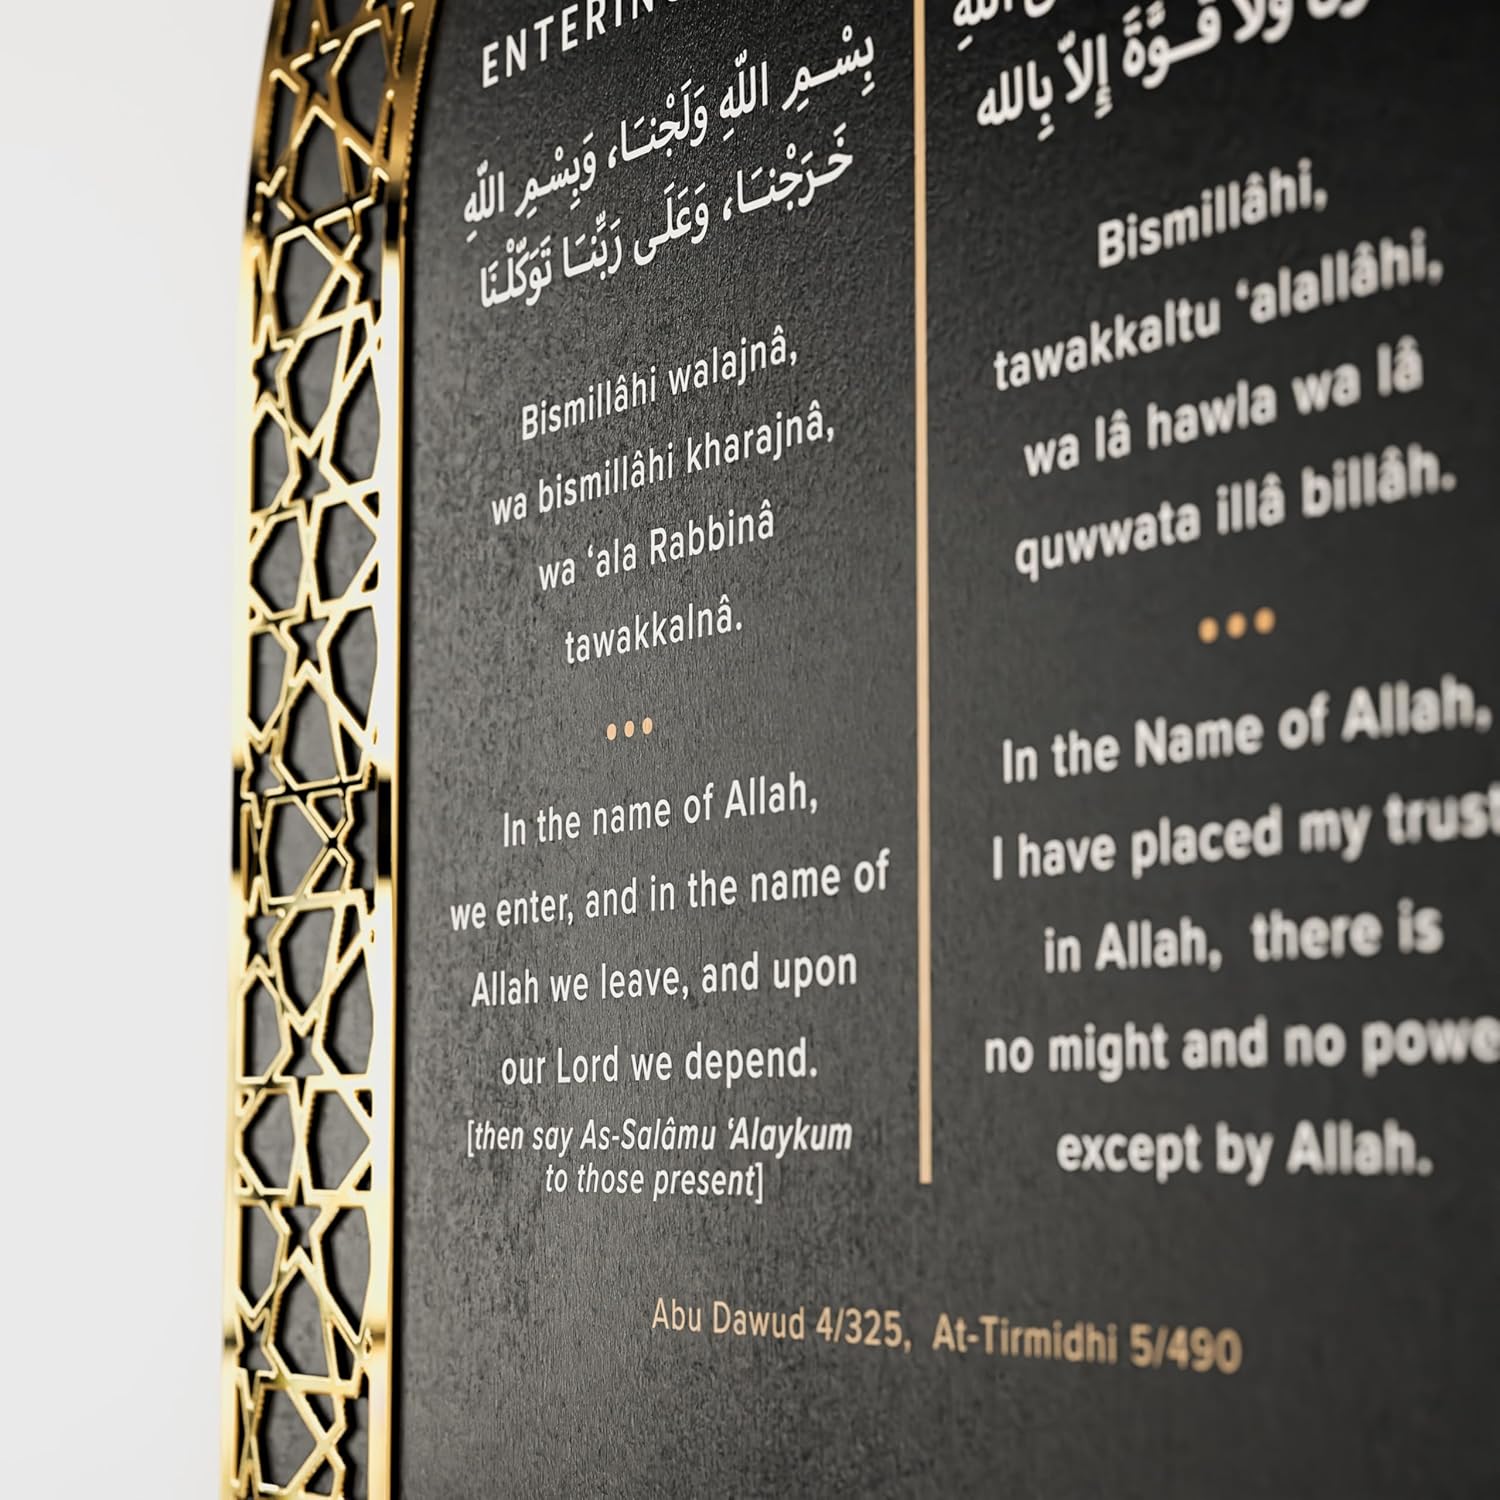 ENTERING
بِسْـمِ اللّٰهِ وَلَجْنـَا، وَبِسْـمِ اللّٰهِ
خَـرَجْنـَا، وَعَلَـى رَبِّنـَا تَوَكّلْـنَا
Bismillâhi walajnâ,
wa bismillâhi kharajnâ,
wa ‘ala Rabbinâ
tawakkalnâ.
•••
In the name of Allah,
we enter, and in the name of
Allah we leave, and upon
our Lord we depend.
[then say As-Salâmu ‘Alaykum
to those present]
وَلا قُـوَّةَ إِلاّ بِالله
Bismillâhi,
tawakkaltu ‘alallâhi,
wa lâ hawla wa lâ
quwwata illâ billâh.
•••
In the Name of Allah,
I have placed my trust
in Allah, there is
no might and no powe
except by Allah.
Abu Dawud 4/325, At-Tirmidhi 5/490